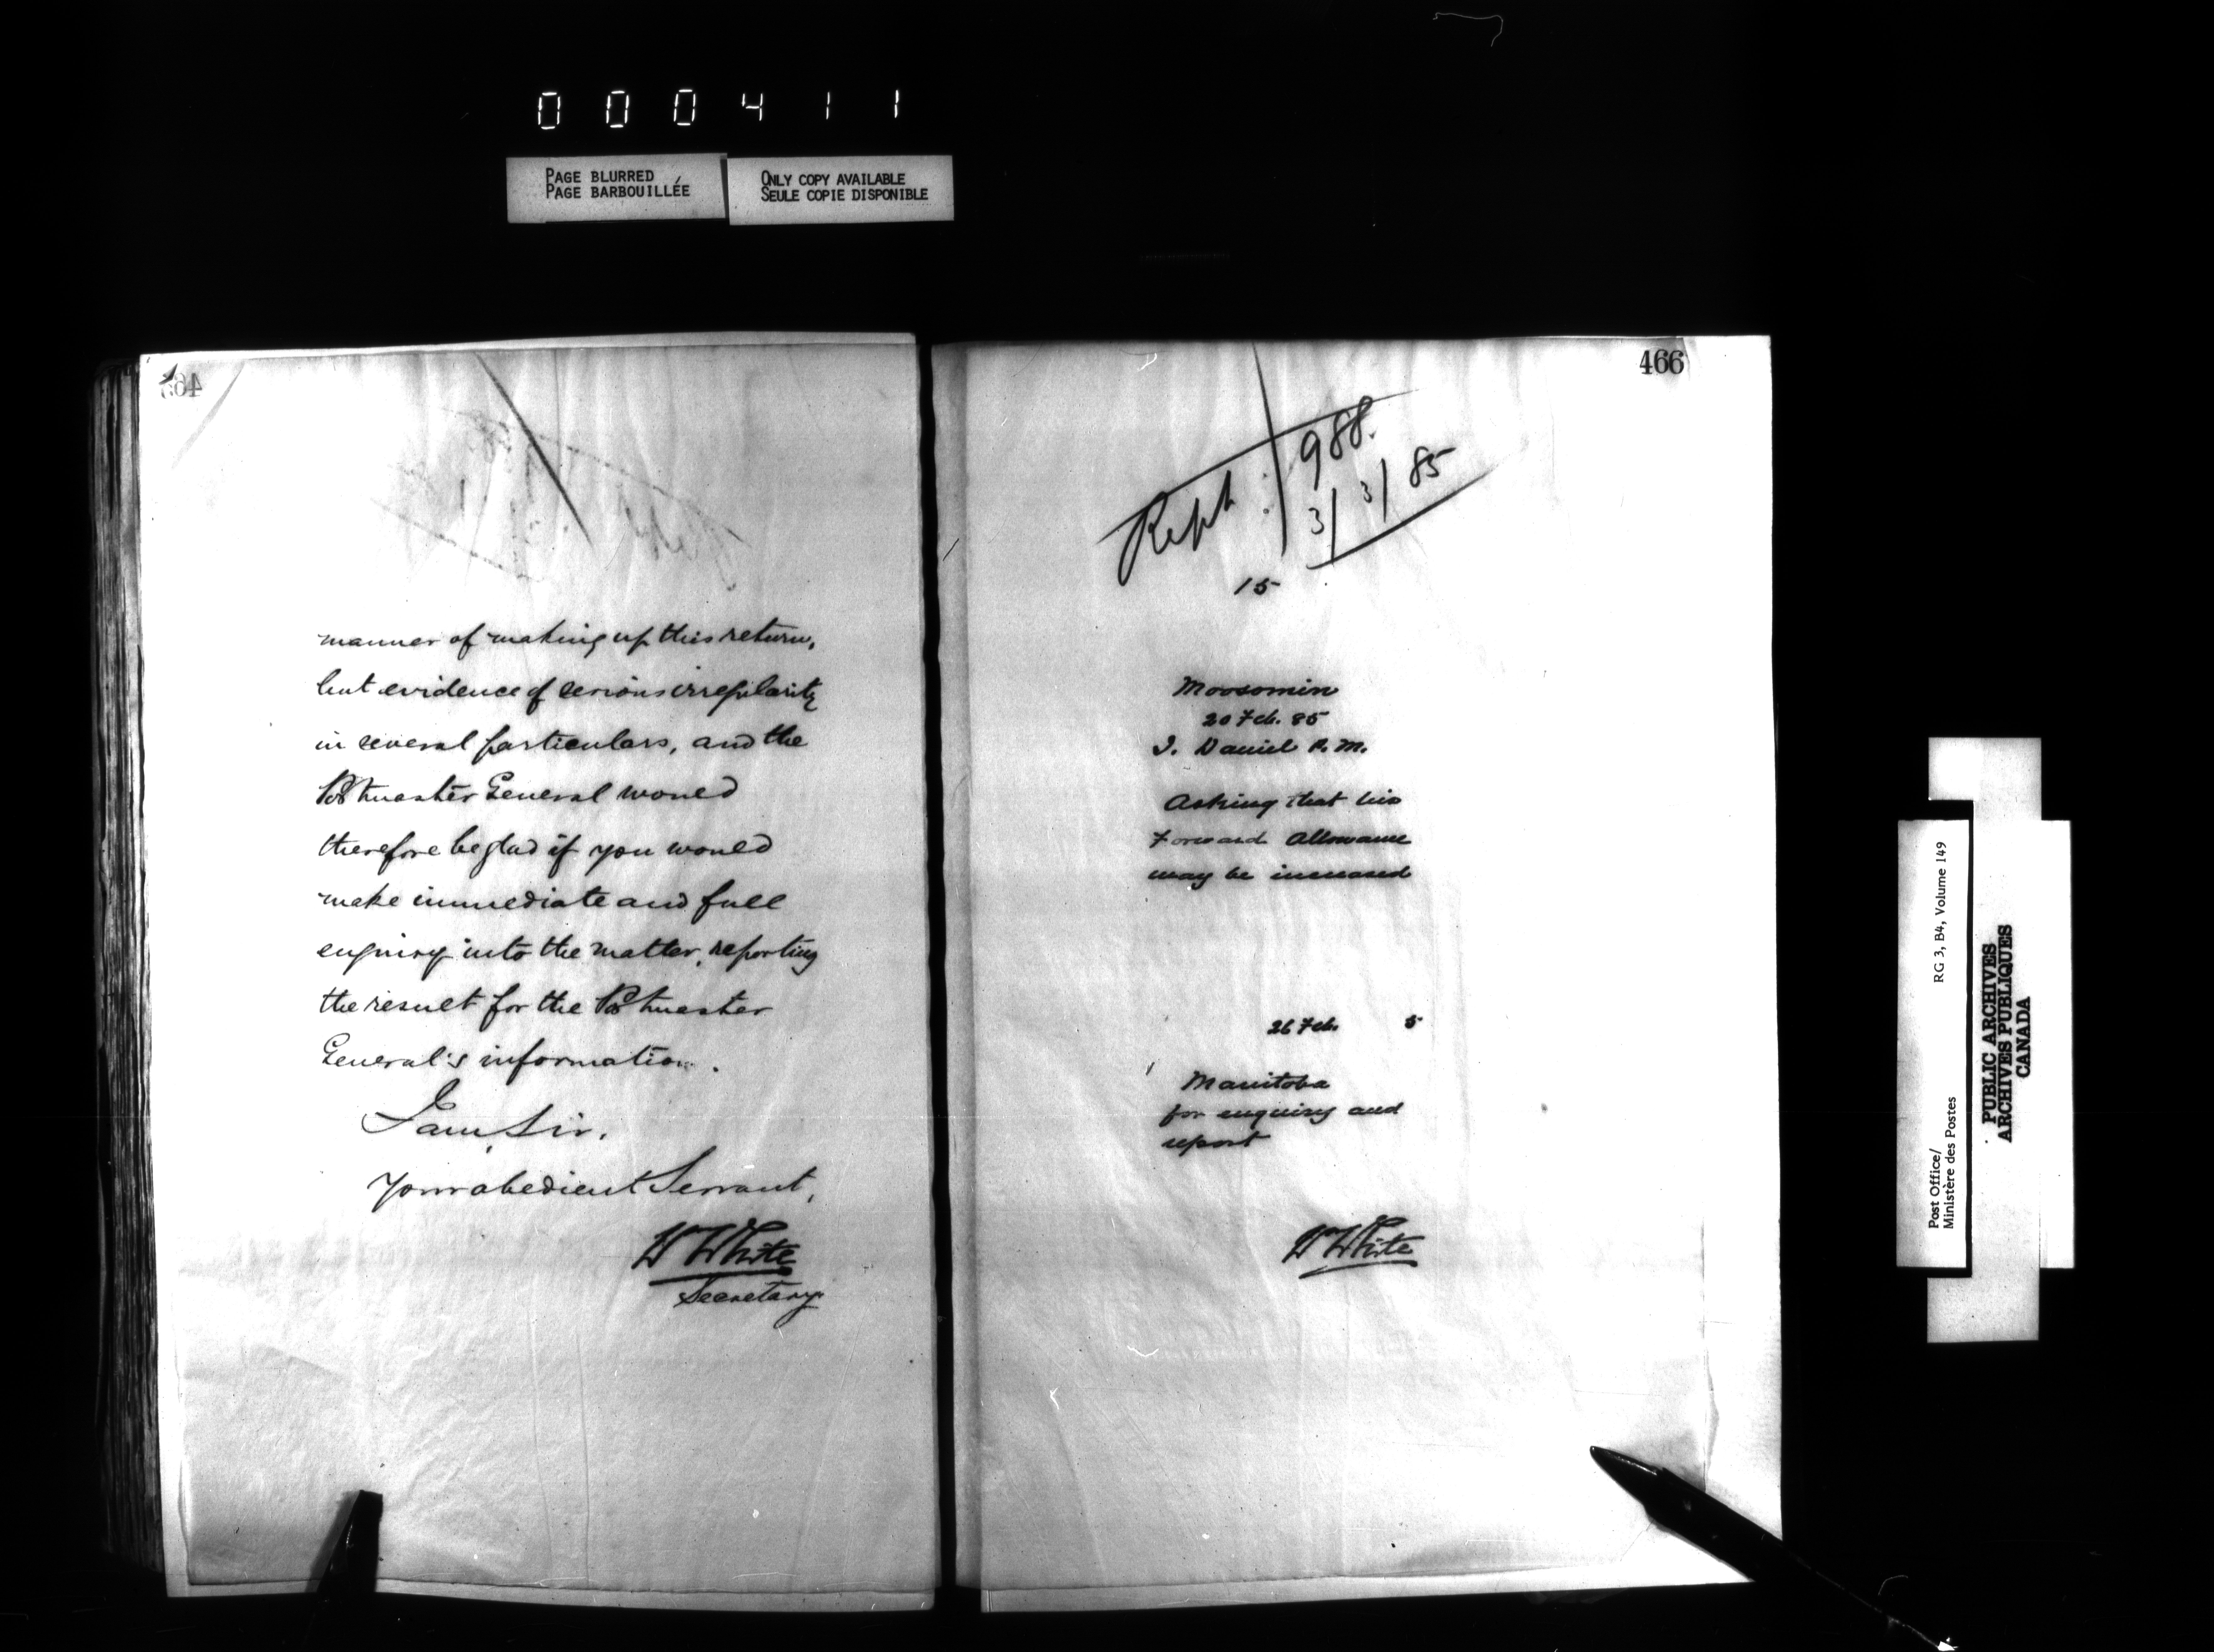 000411
PAGE BLURRED
PAGE BARBOUILLÉE
ONLY COPY AVAILABLE
SEULE COPIE DISPONIBLE
465
manner of making up this return,
but evidence of serious irregularity
in several particulars, and the
Postmaster General would
therefore be glad if you would
make immediate and full
enquiry into the matter, reporting
the result for the Postmaster
General's information.
I am, Sir,
Your obedient Servant,
W White
Secretary
466
Rept: 988.
3/3/85
15
Moosomin
20 Feb. 85
J. Daniel P.M.
Asking that his
Forward Allowance
may be increased
26 Feb. 5
Manitoba
for enquiry and
report
W White
Post Office/
Ministère des Postes
RG 3, B4, Volume 149
PUBLIC ARCHIVES
ARCHIVES PUBLIQUES
CANADA